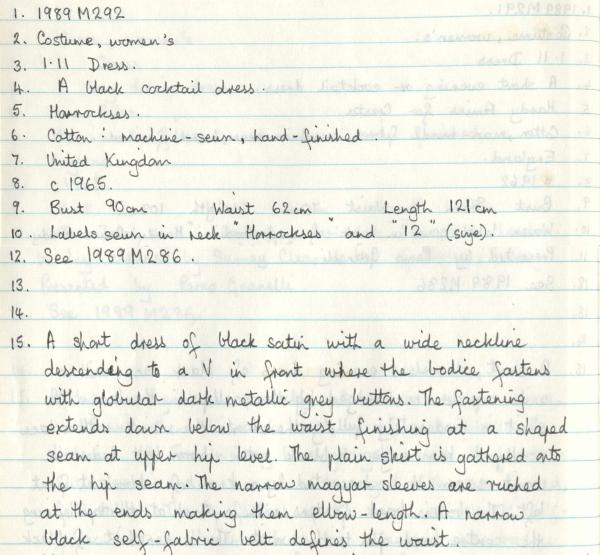 1. 1989 M292
2. Costume, women's
3. 1.11 Dress.
4. A black cocktail dress.
5. Horrockses.
6. Cotton: machine-sewn, hand-finished.
7. United Kingdom
8. c 1965.
9. Bust 90cm Waist 62cm Length 121cm
10. Labels sewn in neck "Horrockses" and "12" (size).
12. See 1989 M286.
13.
14.
15. A short dress of black satin with a wide neckline
descending to a V in front where the bodice fastens
with globular dark metallic grey buttons. The fastening
extends down below the waist finishing at a shaped
seam at upper hip level. The plain skirt is gathered onto
the hip seam. The narrow magyar sleeves are ruched
at the ends making them elbow-length. A narrow
black self-fabric belt defines the waist.